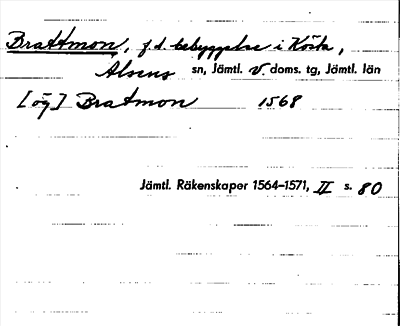 Brattmon, f.d. bebyggelse i Kösta,
Alsens sn, Jämtl. v. doms. tg, Jämtl. län
[ög] Bratmon 1568
Jämtl. Räkenskaper 1564–1571, II s. 80